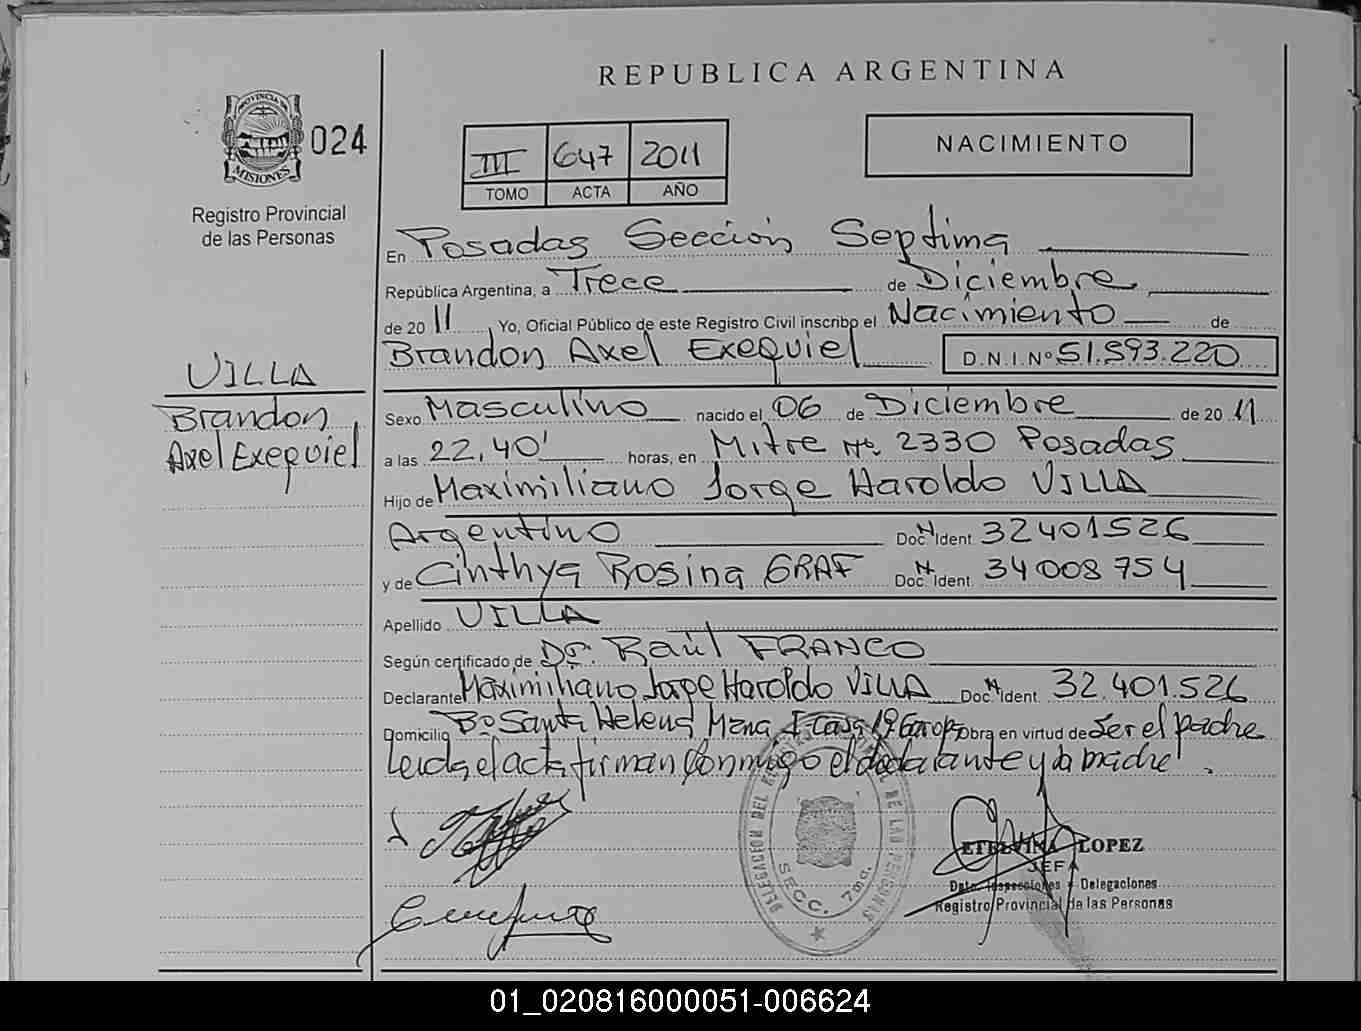 REPUBLICA ARGENTINA
PROVINCIA DE
MISIONES
024
Registro Provincial
de las Personas
III 647 2011
TOMO ACTA AÑO
NACIMIENTO
En Posadas Sección Septima
República Argentina, a Trece de Diciembre
de 2011, Yo, Oficial Público de este Registro Civil inscribo el Nacimiento de
Brandon Axel Exequiel D.N.I.Nº 51.593.220
VILLA
Brandon
Axel Exequiel
Sexo Masculino nacido el 06 de Diciembre de 2011
a las 22,40' horas, en Mitre Nº. 2330 Posadas
Hijo de Maximiliano Jorge Haroldo VILLA
Argentino Doc. N Ident. 32401526
y de Cinthya Rosina GRAF Doc. N Ident. 34008754
Apellido VILLA
Según certificado de Dr. Raúl FRANCO
Declarante Maximiliano Jorge Haroldo VILLA Doc. N Ident. 32.401.526
Domicilio Bº Santa Helena Mzna I Casa 19 Garupá Obra en virtud de Ser el padre
Leida el acta firman conmigo el declarante y la madre.
DELEGACION DEL REGISTRO PROVINCIAL DE LAS PERSONAS
SECC. 7ma.
ETELVINA LOPEZ
JEFA
Dpto. Inspecciones y Delegaciones
Registro Provincial de las Personas
01_020816000051-006624